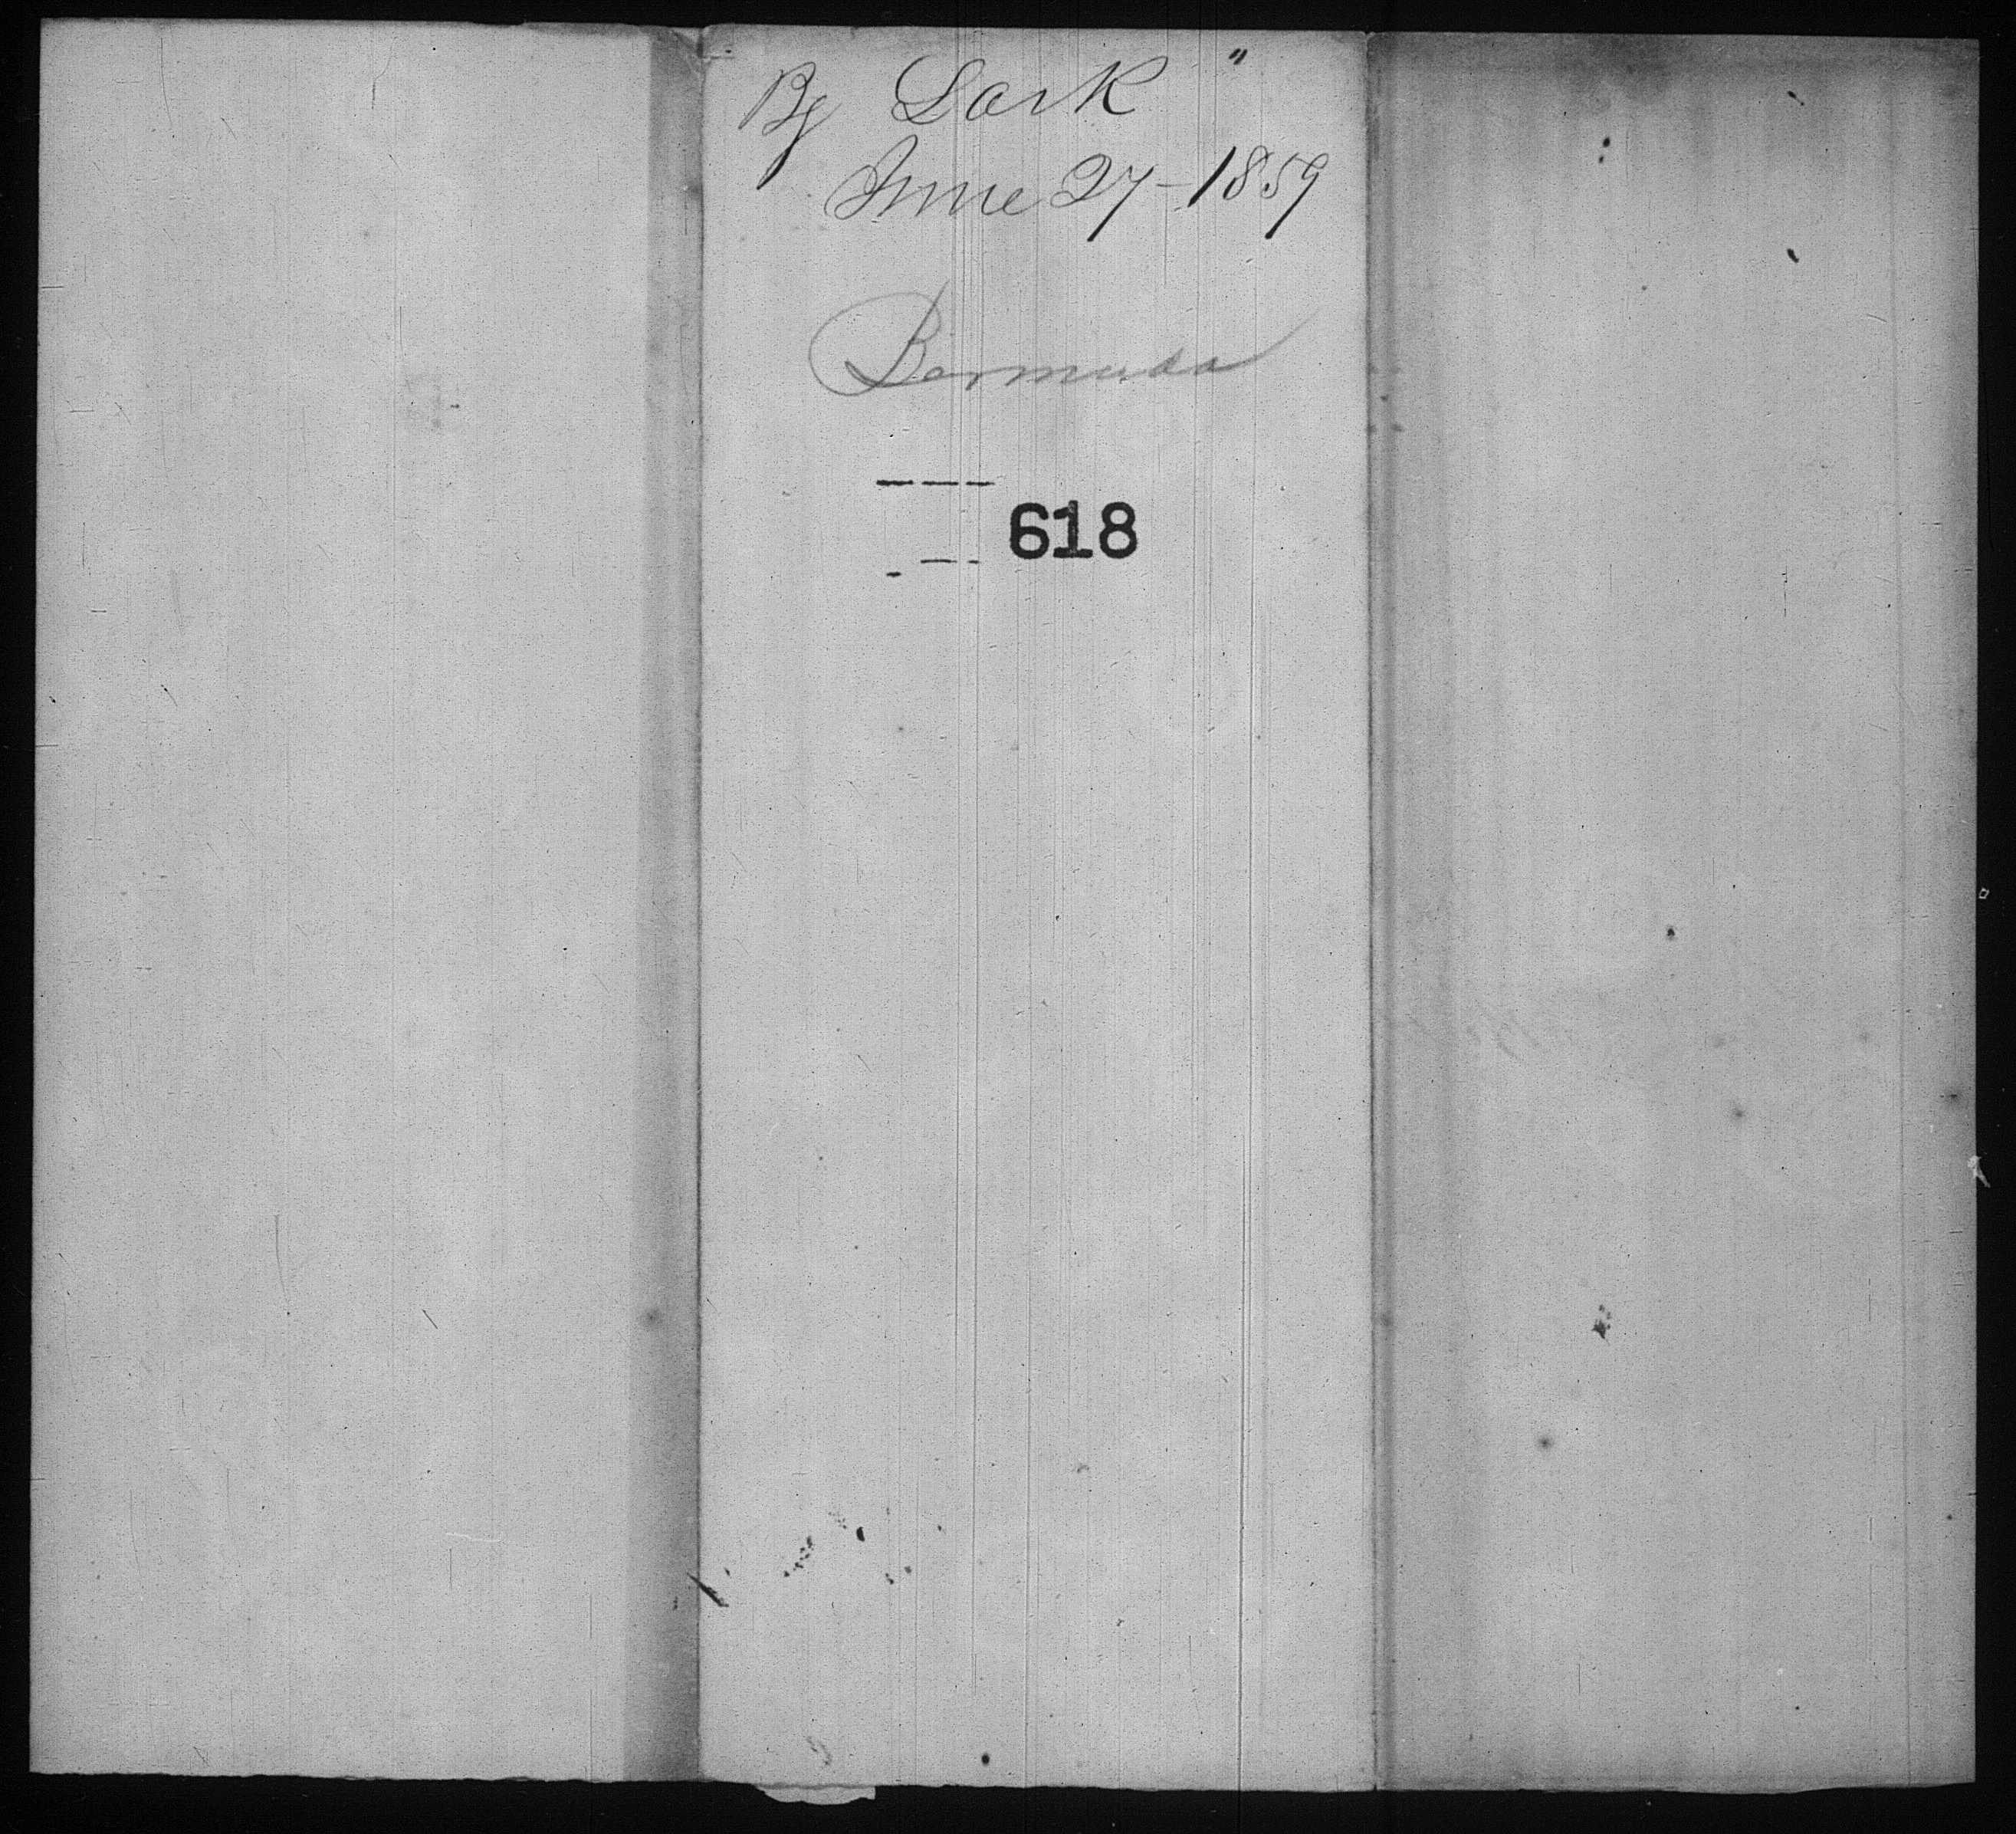 Bg Lark "
June 27-1859
Bermuda
618